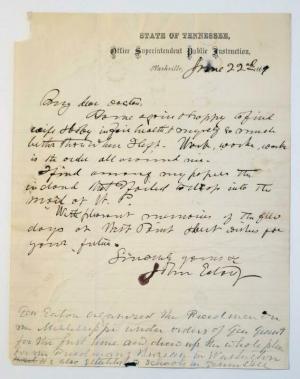 STATE OF TENNESSEE,
Office Superintendent Public Instruction,
Nashville, June 22nd
My dear doctor,
home again & happy to find
wife & baby in fair health & myself so much
better than when I left. Work, work, work
is the order all around me.
I find among my papers the
inclosed that I failed to drop into the
mail at W. P.
With pleasant memories of the few
days at West Point & best wishes for
your future.
Sincerely yours
John Eaton
Gen Eaton organized the Freedmen on
the Mississippi under orders of Gen Grant
for the first time and drew up the whole plan
for the Freedmens Bureau in Washington
He also schools in Tennessee